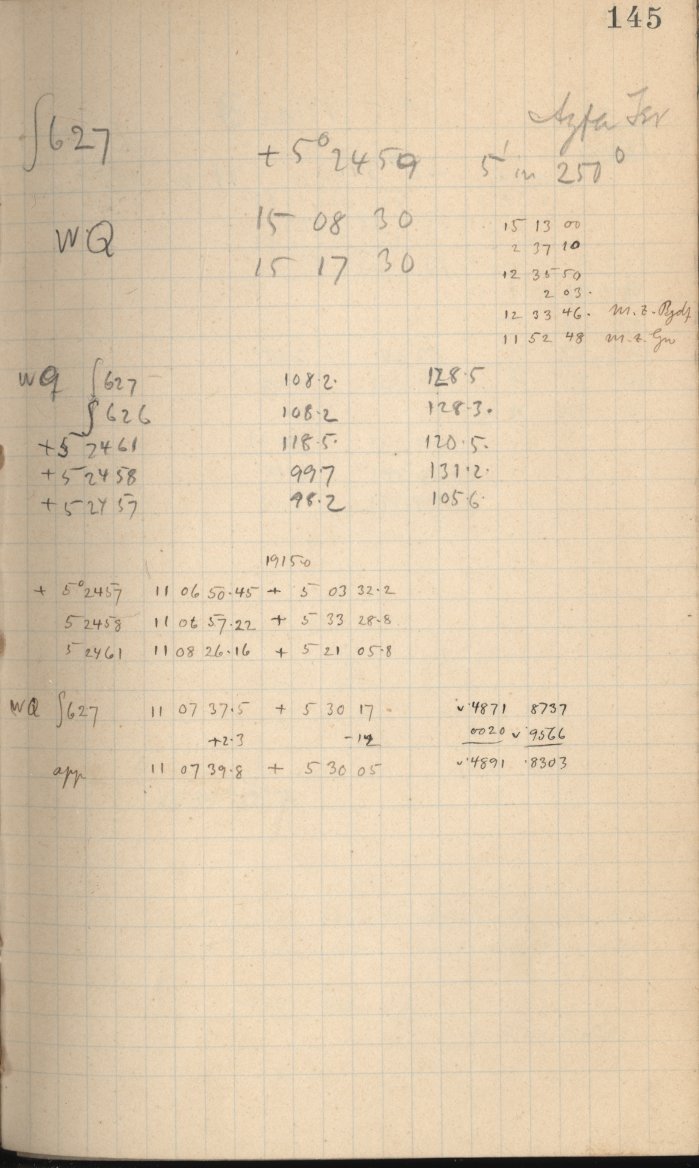 145
∫627 + 5° 2459 5' in 250°
WQ 15 08 30
15 17 30
15 13 00
2 37 10
12 35 50
2 03.
12 33 46. m.z.
11 52 48 m.z.
WQ ∫627 108.2. 128.5
∫626 108.2 128.3.
+5 2461 118.5. 120.5.
+5 2458 997 131.2.
+5 2457 98.2 105.6.
1915.0
+ 5° 2457 11 06 50.45 + 5 03 32.2
5 2458 11 06 57.22 + 5 33 28.8
5 2461 11 08 26.16 + 5 21 05.8
WQ ∫627 11 07 37.5 + 5 30 17 v.4871 8737
+2.3 -12 0020 v.9566
app 11 07 39.8 + 5 30 05 v.4891 .8303